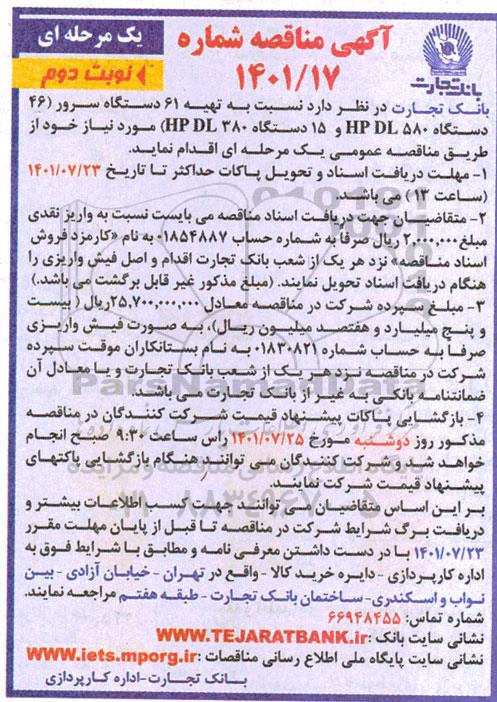 بانک تجارت
آگهی مناقصه شماره
۱۴۰۱/۱۷
یک مرحله ای
نوبت دوم
بانک تجارت در نظر دارد نسبت به تهیه ۶۱ دستگاه سرور (۴۶
دستگاه HP DL ۵۸۰ و ۱۵ دستگاه HP DL ۳۸۰) مورد نیاز خود از
طریق مناقصه عمومی یک مرحله ای اقدام نماید.
۱- مهلت دریافت اسناد و تحویل پاکات حداکثر تا تاریخ ۱۴۰۱/۰۷/۲۳
(ساعت ۱۳) می باشد.
۲- متقاضیان جهت دریافت اسناد مناقصه می بایست نسبت به واریز نقدی
مبلغ ۲,۰۰۰,۰۰۰ ریال صرفا به شماره حساب ۱۸۵۴۸۸۷ به نام «کارمزد فروش
اسناد مناقصه» نزد هر یک از شعب بانک تجارت اقدام و اصل فیش واریزی را
هنگام دریافت اسناد تحویل نمایند. (مبلغ مذکور غیر قابل برگشت می باشد.)
۳- مبلغ سپرده شرکت در مناقصه معادل ۲۵,۷۰۰,۰۰۰,۰۰۰ ریال ( بیست
و پنج میلیارد و هفتصد میلیون ریال)، به صورت فیش واریزی
صرفا به حساب شماره ۰۱۸۳۰۸۲۱ به نام بستانکاران موقت سپرده
شرکت در مناقصه نزد هر یک از شعب بانک تجارت و یا معادل آن
ضمانتنامه بانکی به غیر از بانک تجارت می باشد.
۴- بازگشایی پاکات پیشنهاد قیمت شرکت کنندگان در مناقصه
مذکور روز دوشنبه مورخ ۱۴۰۱/۰۷/۲۵ راس ساعت ۹:۳۰ صبح انجام
خواهد شد و شرکت کنندگان می توانند هنگام بازگشایی پاکتهای
پیشنهاد قیمت شرکت نمایند.
بر این اساس متقاضیان می توانند جهت کسب اطلاعات بیشتر و
دریافت برگ شرایط شرکت در مناقصه تا قبل از پایان مهلت مقرر
۱۴۰۱/۰۷/۲۳ با در دست داشتن معرفی نامه و مطابق با شرایط فوق به
اداره کارپردازی - دایره خرید کالا - واقع در تهران - خیابان آزادی - بین
نواب و اسکندری- ساختمان بانک تجارت - طبقه هفتم مراجعه نمایند.
شماره تماس: ۶۶۹۴۸۴۵۵
نشانی سایت بانک :WWW.TEJARATBANK.ir
نشانی سایت پایگاه ملی اطلاع رسانی مناقصات :www.iets.mporg.ir
بانک تجارت-اداره کارپردازی
ParsNamadData